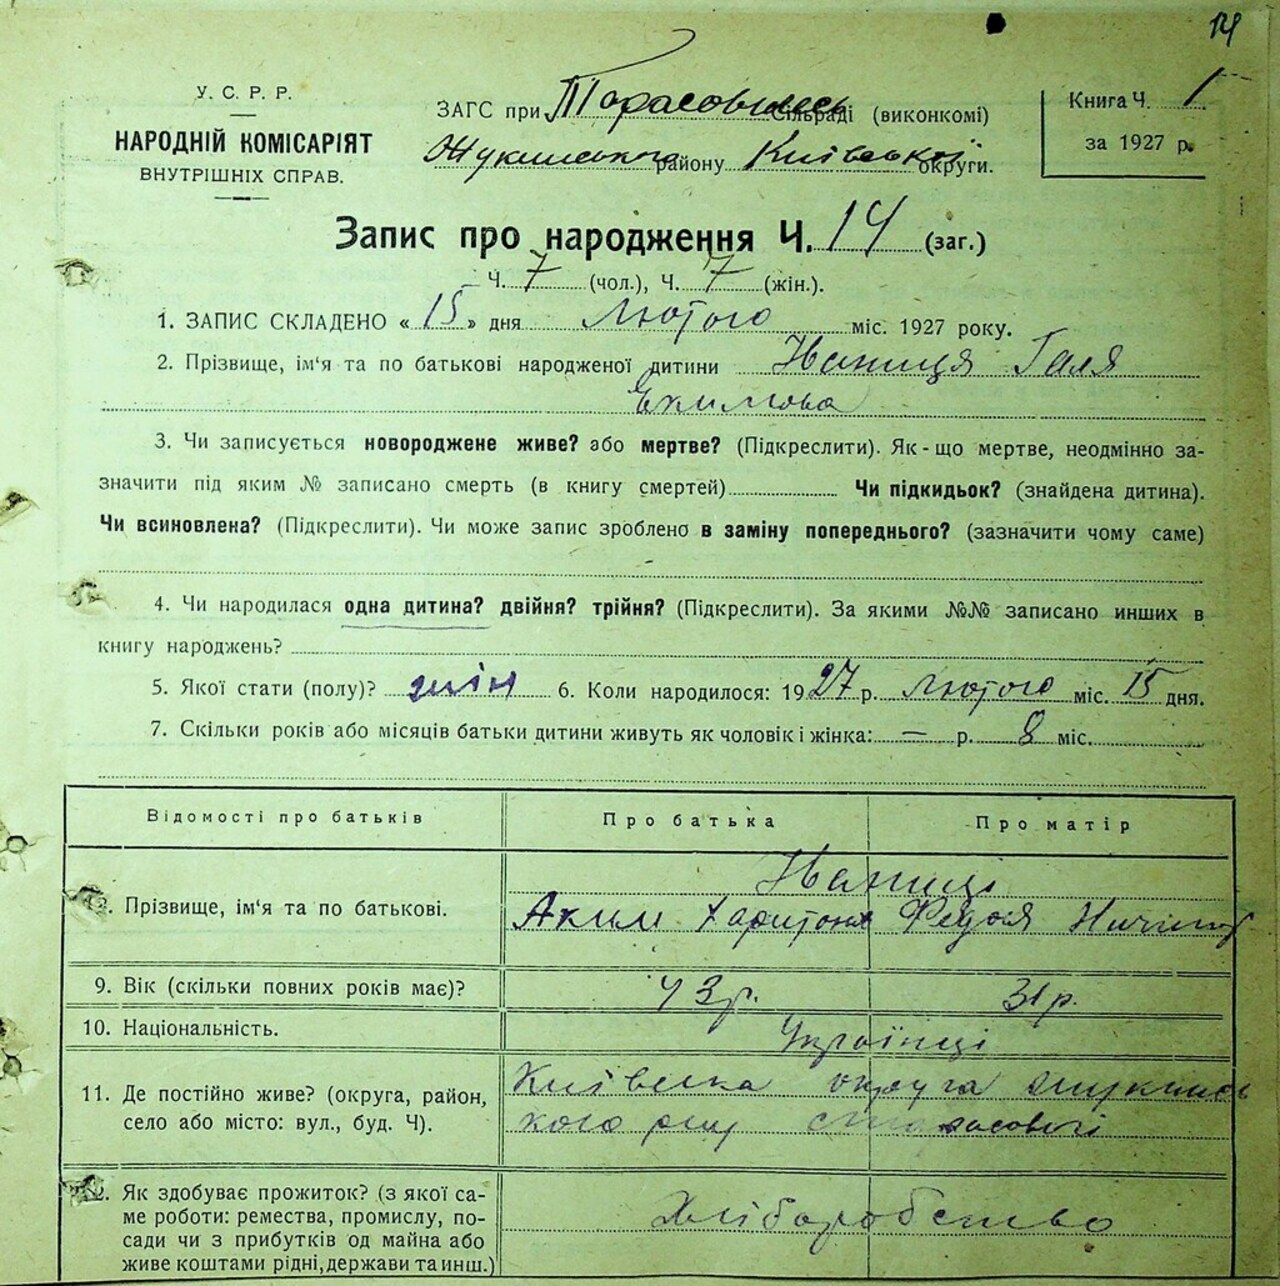 14
У. С. Р. Р.
НАРОДНІЙ КОМІСАРІЯТ
ВНУТРІШНІХ СПРАВ.
ЗАГС при Тарасовилесь Сільраді (виконкомі)
Жукинського району Київської округи.
Книга Ч. 1
за 1927 р.
Запис про народження Ч. 14 (заг.)
Ч. 7 (чол.), Ч. 7 (жін.).
1. ЗАПИС СКЛАДЕНО « 15 » дня Лютого міс. 1927 року.
2. Прізвище, ім'я та по батькові народженої дитини Іваниця Галя
Екимова
3. Чи записується новороджене живе? або мертве? (Підкреслити). Як - що мертве, неодмінно за-
значити під яким № записано смерть (в книгу смертей) Чи підкидьок? (знайдена дитина).
Чи всиновлена? (Підкреслити). Чи може запис зроблено в заміну попереднього? (зазначити чому саме)
4. Чи народилася одна дитина? двійня? трійня? (Підкреслити). За якими №№ записано инших в
книгу народжень?
5. Якої стати (полу)? жін 6. Коли народилося: 1927 р. Лютого міс. 15 дня.
7. Скільки років або місяців батьки дитини живуть як чоловік і жінка: — р. 8 міс.
Відомості про батьків Про батька Про матір
Іваниці
Прізвище, ім'я та по батькові. Аким Харитонів Федося
9. Вік (скільки повних років має)? 43 р. 31 р.
10. Національність. Українці
11. Де постійно живе? (округа, район, Київська округа Жукинсь
село або місто: вул., буд. Ч). кого
Як здобуває прожиток? (з якої са-
ме роботи: ремества, промислу, по- Хліборобство
сади чи з прибутків од майна або
живе коштами рідні, держави та инш.)